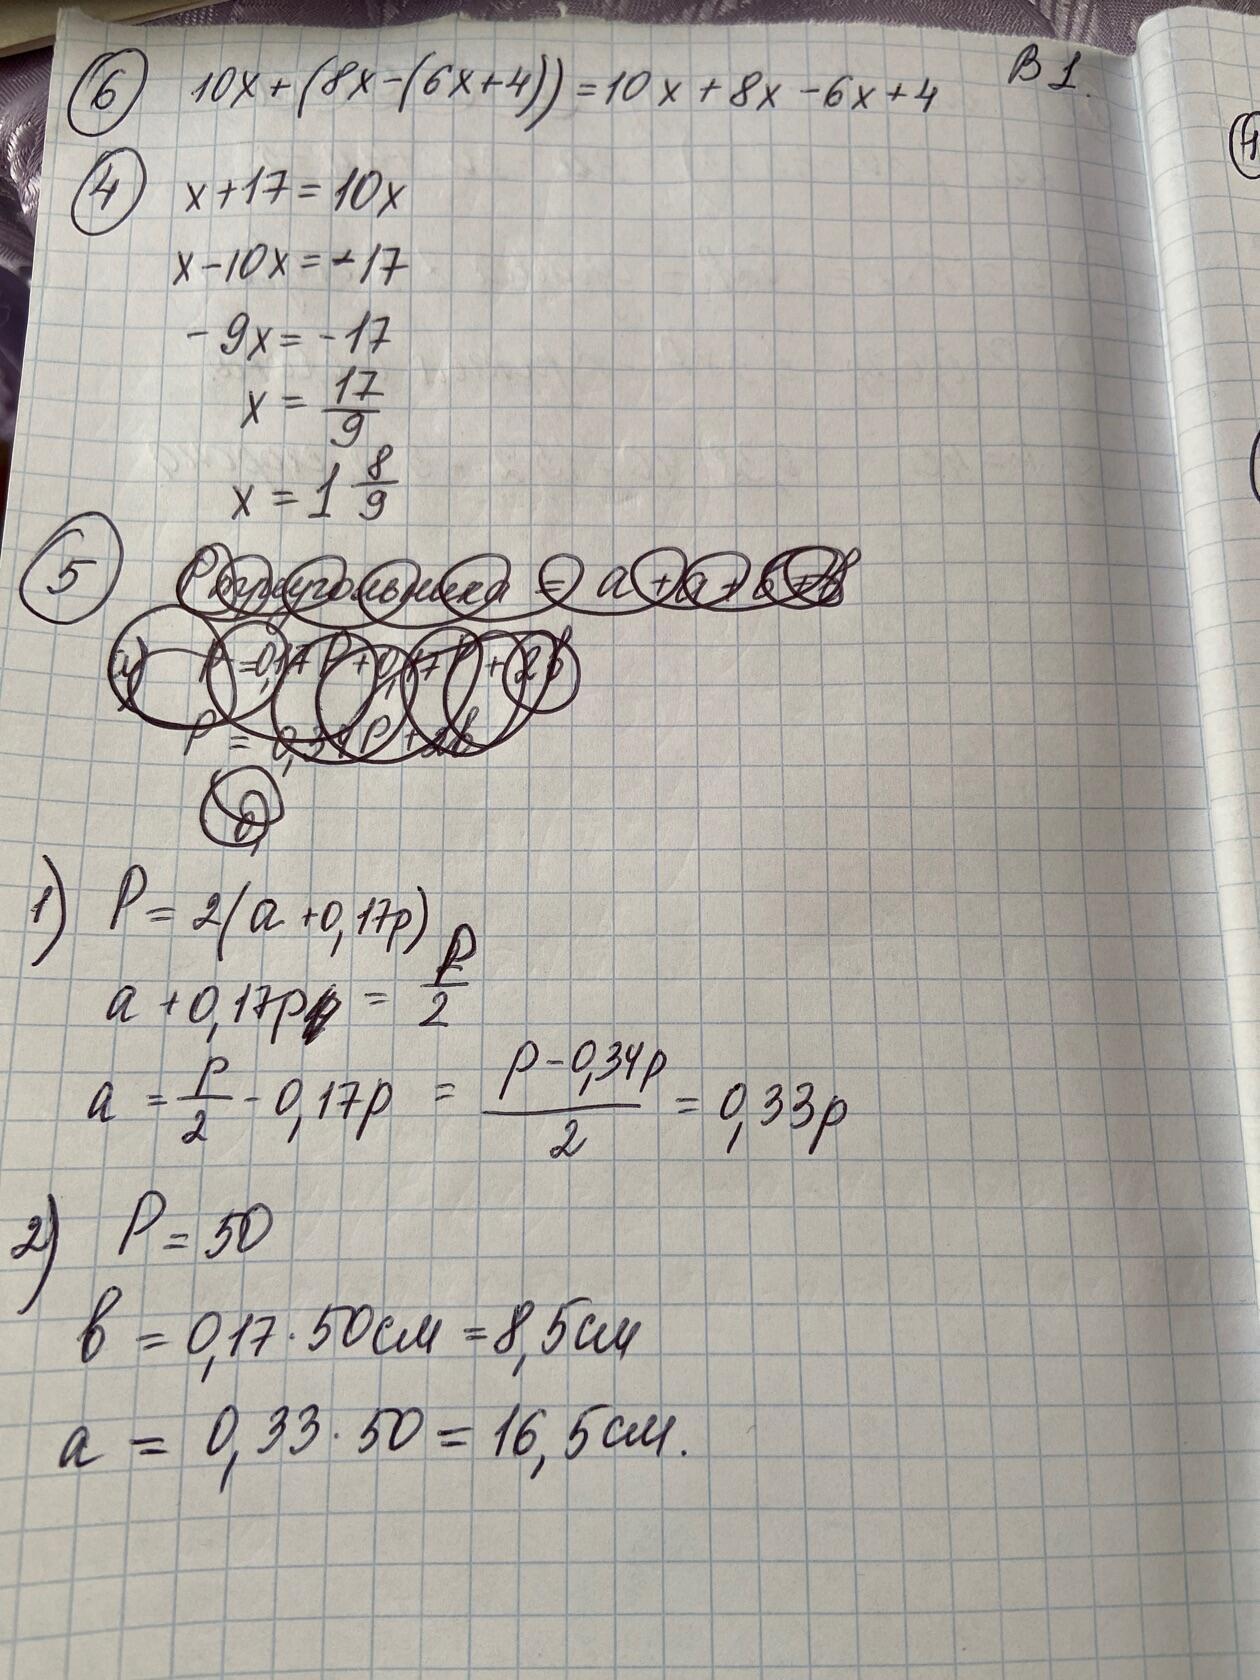 В 1.
6 10x+(8x-(6x+4))=10x+8x-6x+4
4 x+17=10x
x-10x=-17
-9x=-17
x=17/9
x=1 8/9
5
1) P=2(a+0,17p)
a+0,17p = P/2
a = P/2 - 0,17p = (p-0,34p)/2 = 0,33p
2) P=50
в = 0,17·50см=8,5см
a = 0,33·50=16,5см.